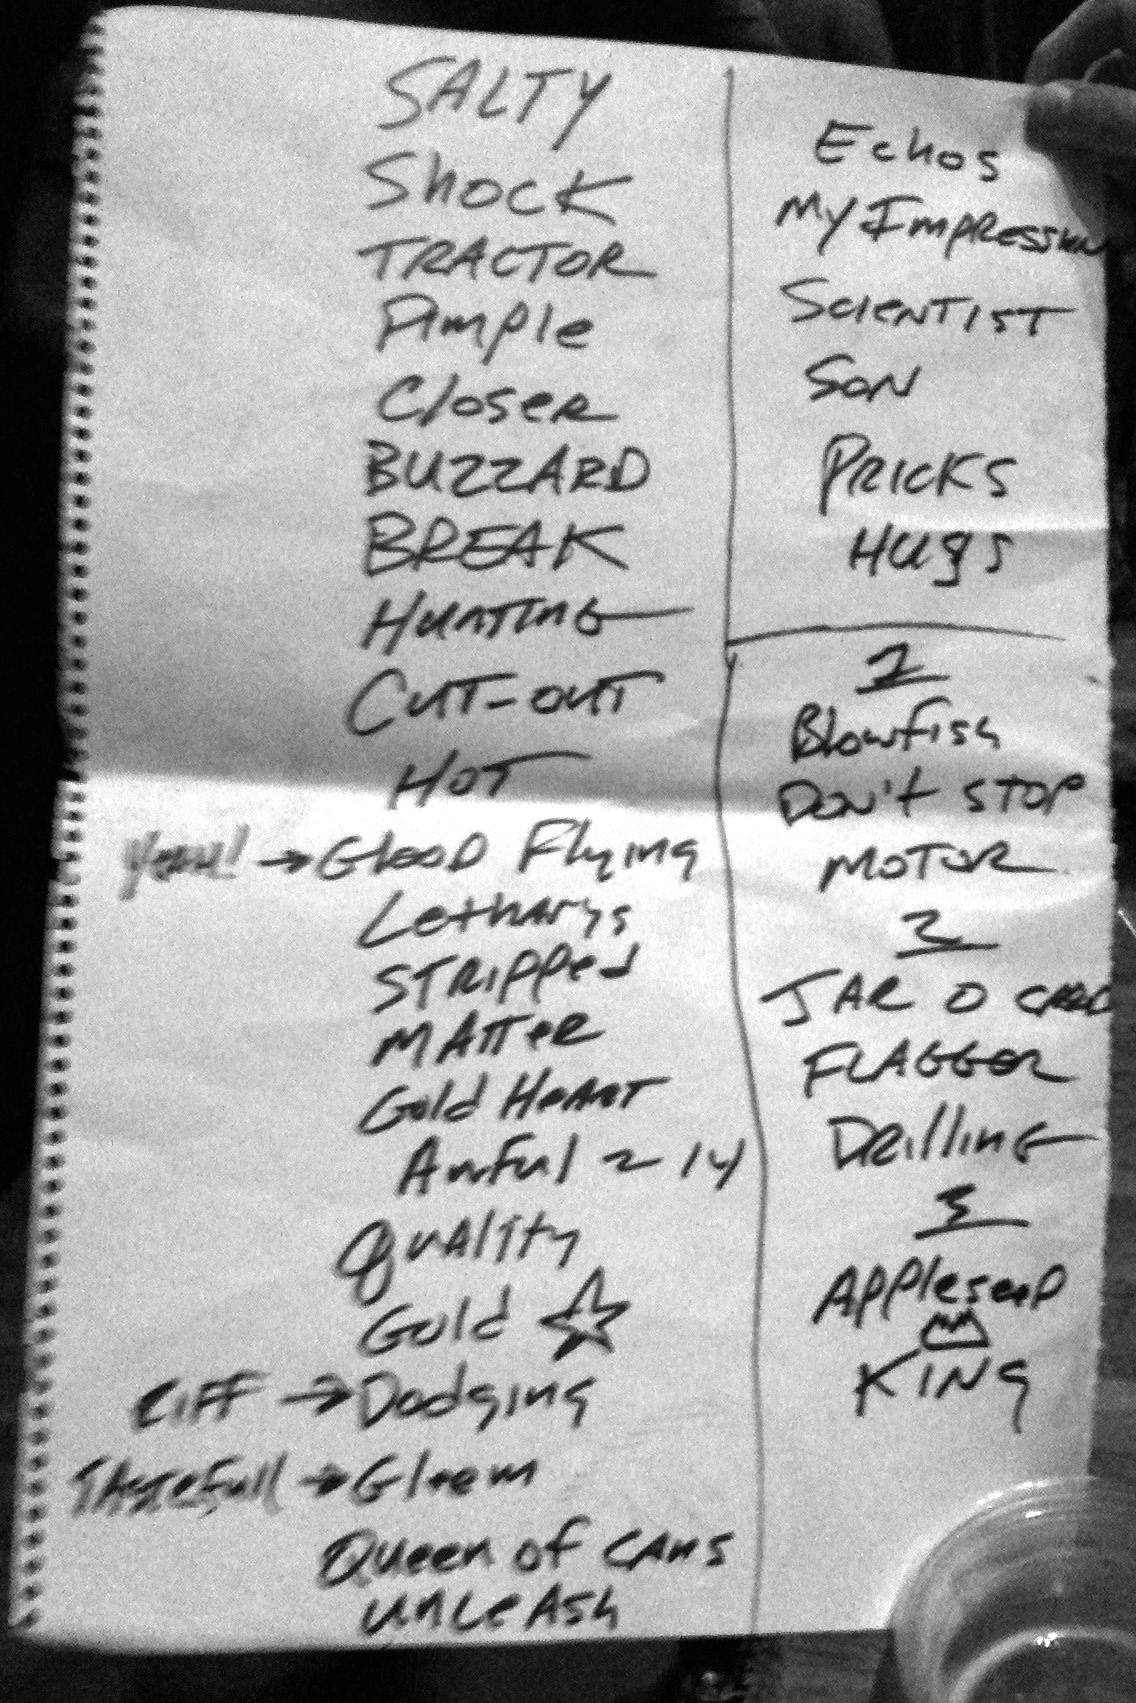 SALTY
SHOCK
TRACTOR
Pimple
Closer
BUZZARD
BREAK
HUNTING
CUT-OUT
HOT
YEAH! → GLOOD Flying
Letharys
STRIPPED
MATTER
Gold HEART
Awful 2 14
Quality
Gold ☆
RIFF → Dodging
TASTEFULL → Gleem
Queen of CANS
UNLEASH
Echos
MY IMPRESSION
SCIENTIST
SON
PRICKS
HUGS
1
Blowfish
DON'T STOP
MOTOR
2
JAR O CARD
FLAGGER
DRILLING
3
APPLESEED
KING